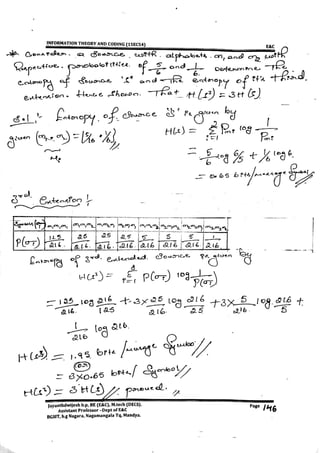 INFORMATION THEORY AND CODING (15EC54) E&C
* Consider a source with alphabets m₁ and m₂ with
respective probabilities of 5/6 and 1/6. Determine the
entropy of source 'S' and the entropy of its third
extension. Hence shown that H(S³) = 3H(S)
Sol: Entropy of source 'S' is given by
given (m₁, m₂) = (5/6, 1/6)
H(S) = Σ Pmi log 1/Pmi
i=1
= 5/6 log 6/5 + 1/6 log 6
= 0.65 bits/message symbol
3rd Extension:
P(σT) 125/216 25/216 25/216 25/216 5/216 5/216 5/216 1/216
Entropy of 3rd extended source is given by
H(S³) = Σ P(σT) log 1/P(σT)
= 125/216 log 216/125 + 3×25/216 log 216/25 + 3×5/216 log 216/5 +
1/216 log 216.
H(S³) = 1.95 bits/message symbol
(or)
= 3×0.65 bits/symbol
H(S³) = 3H(S) proved.
Jayanthdwijesh h p, BE (E&C), M.tech (DECS). Page 146
Assistant Professor - Dept of E&C
BGSIT, b.g Nagara, Nagamangala Tq, Mandya.